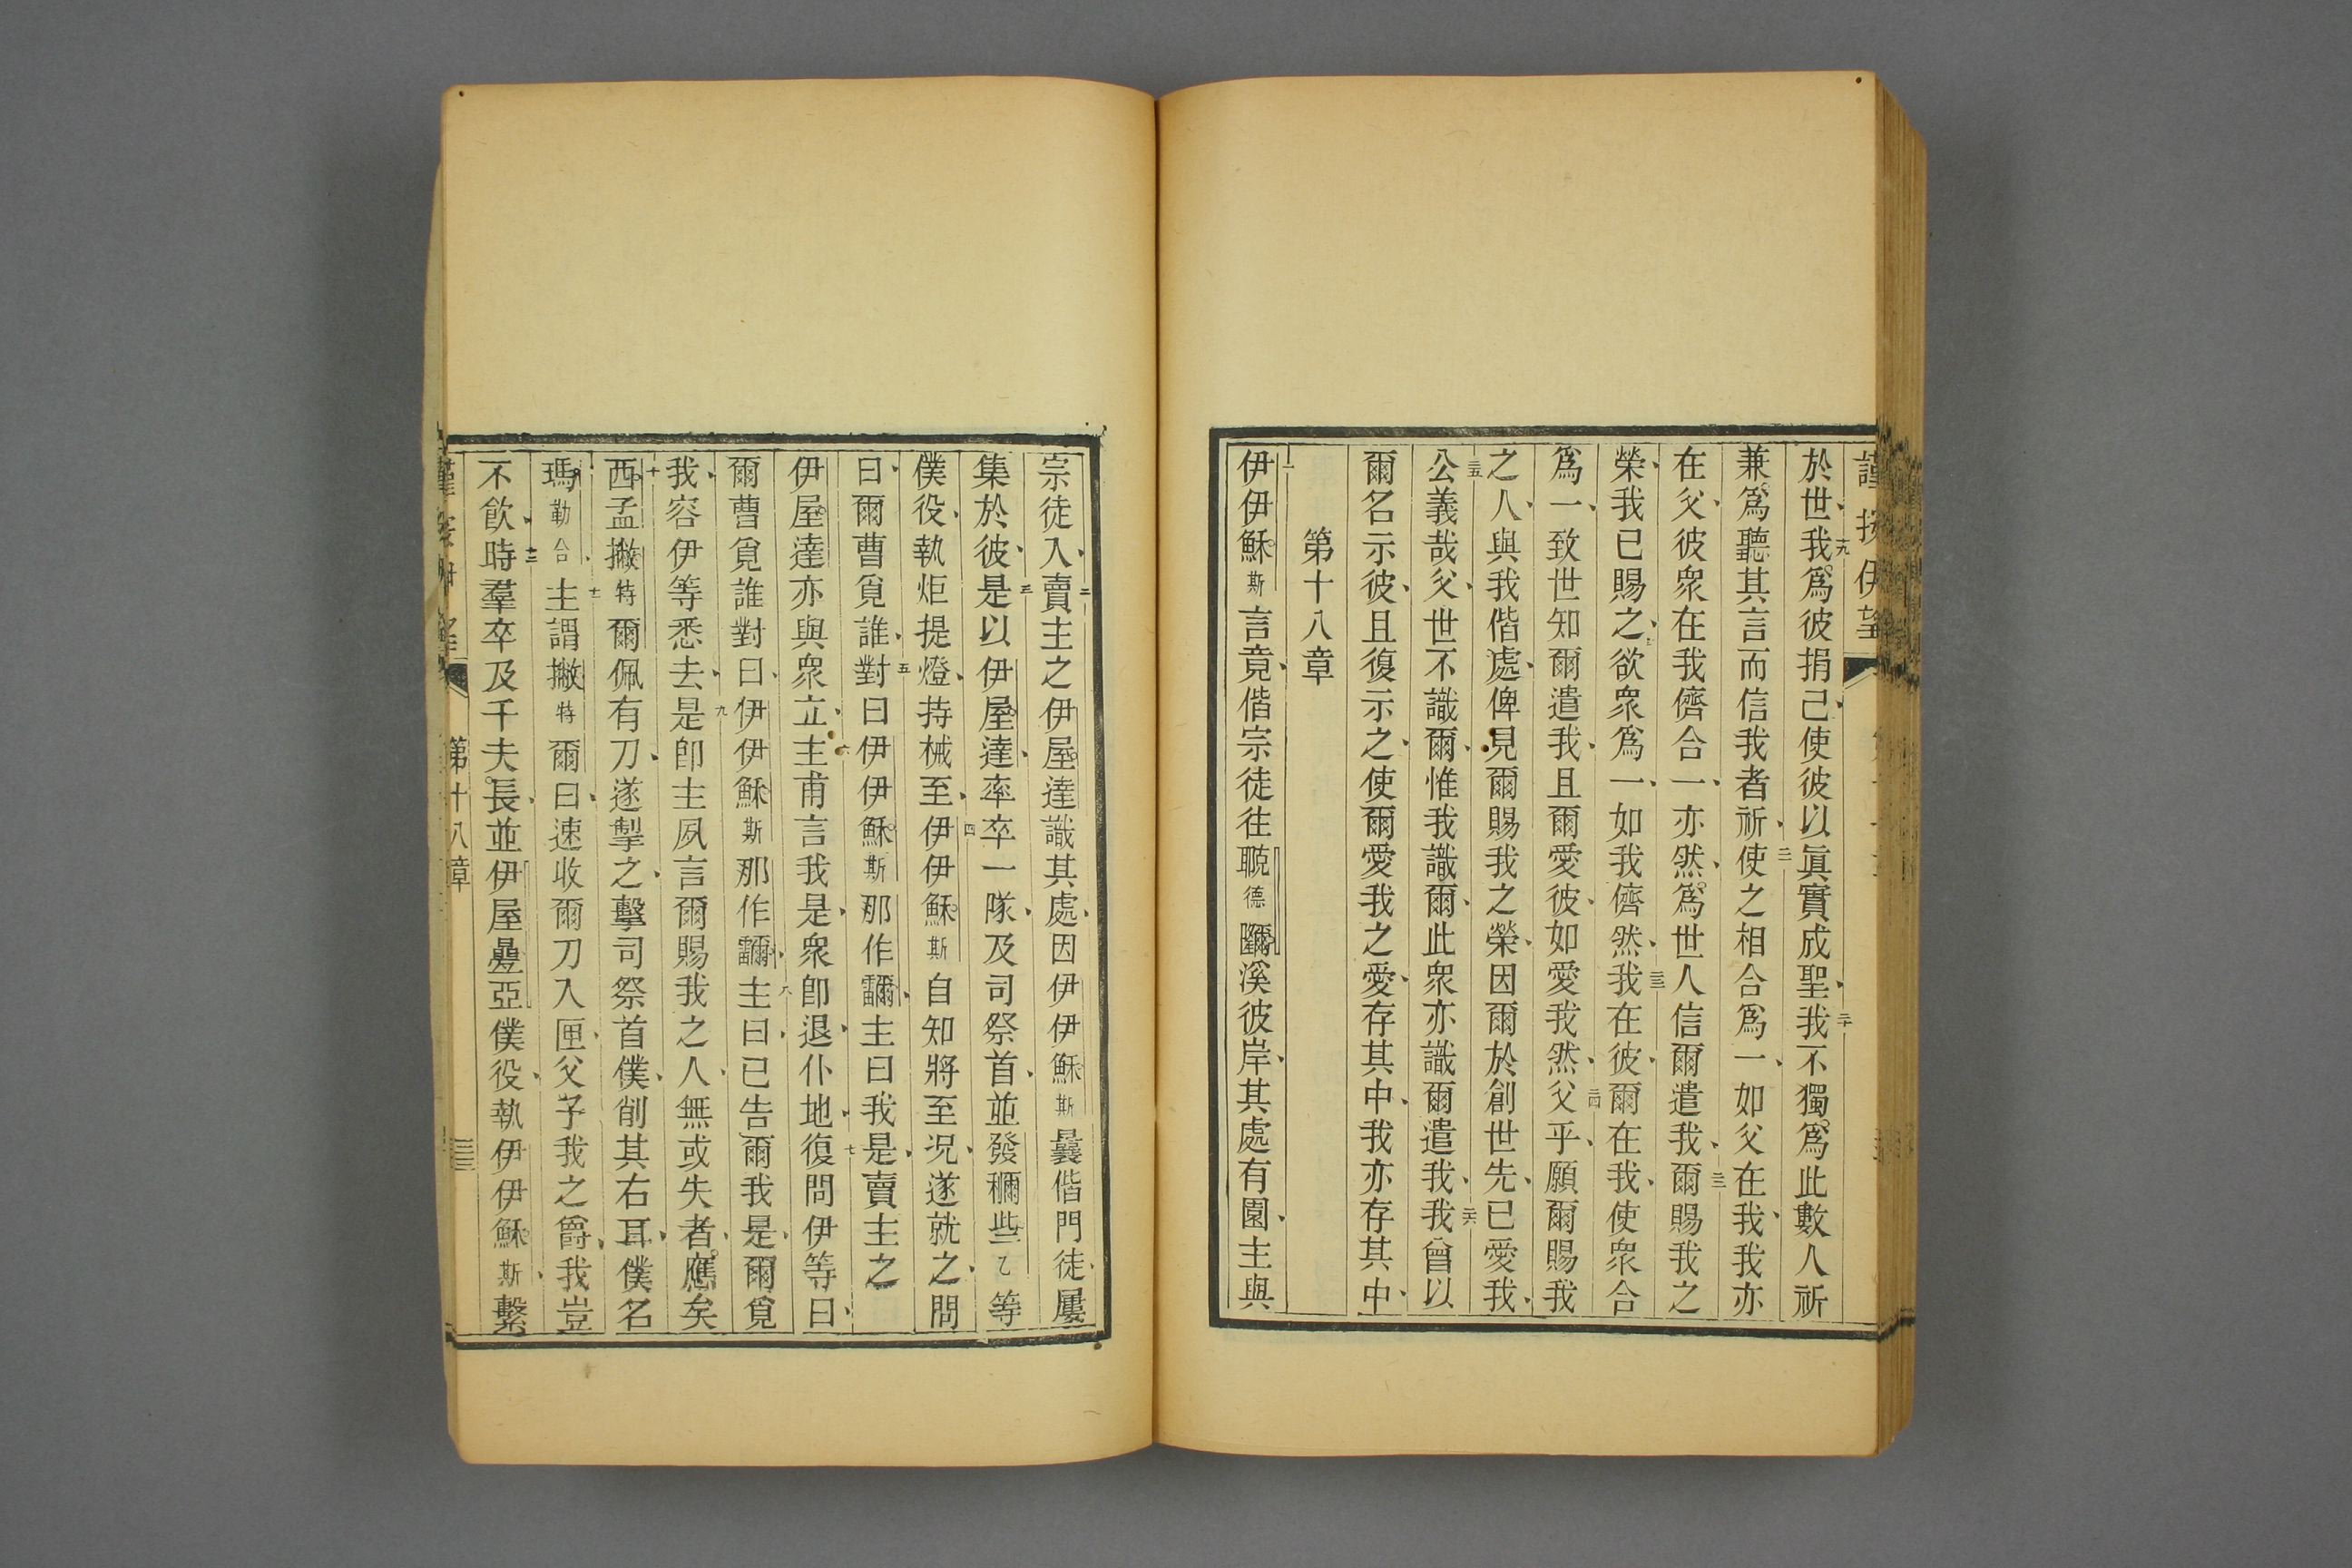 於世我爲彼捐己使彼以眞實成聖我不獨爲此數人祈
兼爲聽其言而信我者祈使之相合爲一如父在我我亦
在父彼衆在我儕合一亦然爲世人信爾遣我爾賜我之
榮我已賜之欲衆爲一如我儕然我在彼爾在我使衆合
爲一致世知爾遣我且爾愛彼如愛我然父乎願爾賜我
之人與我偕處俾見爾賜我之榮因爾於創世先已愛我
公義哉父世不識爾惟我識爾此衆亦識爾遣我我曾以
爾名示彼且復示之使爾愛我之愛存其中我亦存其中
第十八章
伊伊穌斯言竟偕宗徒往德溪彼岸其處有園主與
宗徒入賣主之伊屋達識其處因伊伊穌斯曩偕門徒屢
集於彼是以伊屋達率卒一隊及司祭首並發穪些乙等
僕役執炬提燈持械至伊伊穌斯自知將至况遂就之問
曰爾曹覓誰對曰伊伊穌斯那作主曰我是賣主之
伊屋達亦與衆立主甫言我是衆卽退仆地復問伊等曰
爾曹覓誰對曰伊伊穌斯那作主曰已告爾我是爾覓
我容伊等悉去是卽主夙言爾賜我之人無或失者應矣
西孟撇特爾佩有刀遂掣之擊司祭首僕削其右耳僕名
瑪勒合主謂撇特爾曰速收爾刀入匣父予我之爵我豈
不飮時羣卒及千夫長並伊屋疊亞僕役執伊伊穌斯繫
第十八章